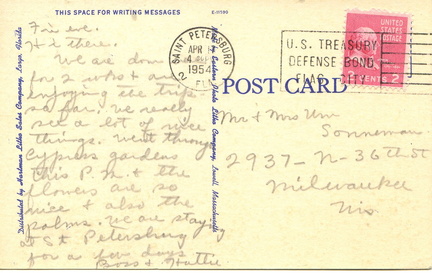 THIS SPACE FOR WRITING MESSAGES
E-11190
Fri eve.
Hi there.
We are down
for 2 wks & are
enjoying the trip
so far. We really
see a lot of nice
things. Went through
Cypress gardens
this P.M. & the
flowers are so
nice & also the
palms. We are staying
at St Petersburg
for a few days
Boss & Hattie
Distributed by Hartman Litho Sales Company, Largo, Florida
Litho Company, Lowell, Massachusetts
SAINT PETERSBURG
APR
4 PM
1954
2
FLA.
U.S. TREASURY
DEFENSE BOND
FLAG CITY
UNITED STATES
POSTAGE
CENTS 2
POST CARD
Mr & Mrs Wm
Sonneman
2937-N-36th St
Milwaukee
Wis.